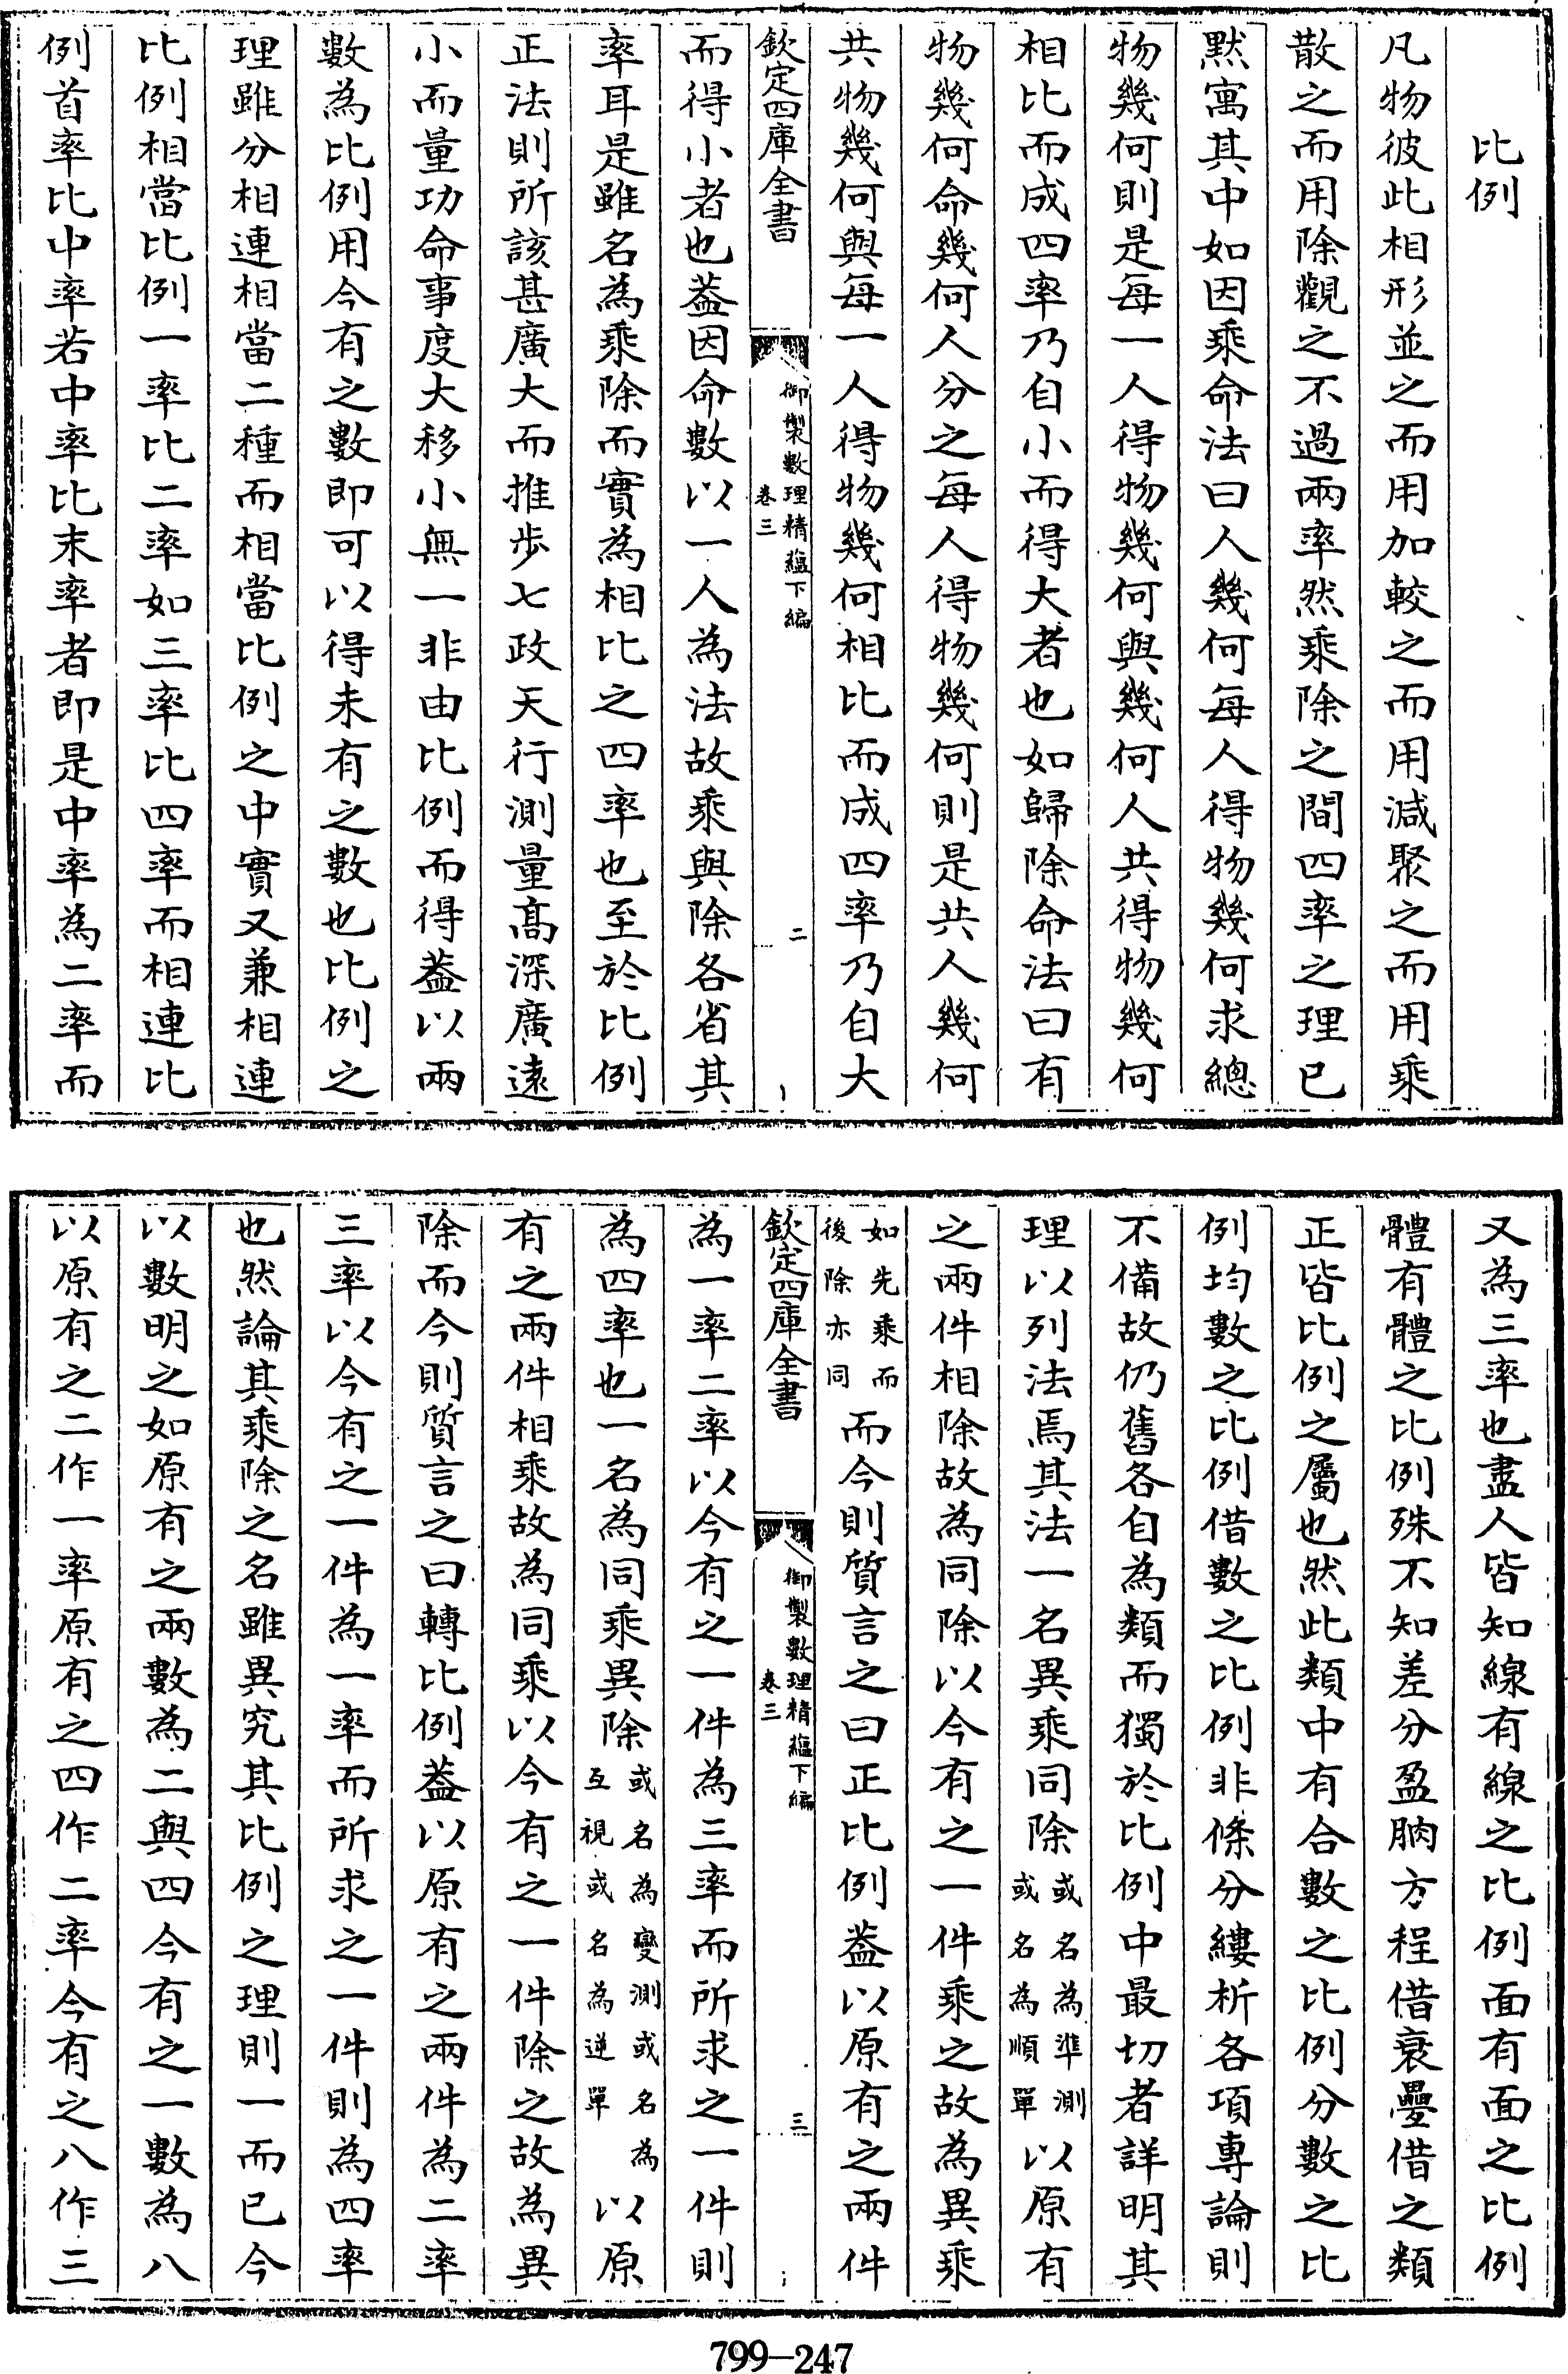 比例
凡物彼此相形並之而用加較之而用減聚之而用乘
散之而用除觀之不過兩率然乘除之間四率之理已
默寓其中如因乘命法曰人幾何每人得物幾何求總
物幾何則是每一人得物幾何與幾何人共得物幾何
相比而成四率乃自小而得大者也如歸除命法曰有
物幾何命幾何人分之每人得物幾何則是共人幾何
共物幾何與每一人得物幾何相比而成四率乃自大
欽定四庫全書
御製數理精蘊下編
卷三
二
而得小者也葢因命數以一人為法故乘與除各省其
率耳是雖名為乘除而實為相比之四率也至於比例
正法則所該甚廣大而推步七政天行測量髙深廣遠
小而量功命事度大移小無一非由比例而得葢以兩
數為比例用今有之數即可以得未有之數也比例之
理雖分相連相當二種而相當比例之中實又兼相連
比例相當比例一率比二率如三率比四率而相連比
例首率比中率若中率比末率者即是中率為二率而
又為三率也盡人皆知線有線之比例面有面之比例
體有體之比例殊不知差分盈朒方程借衰疊借之類
正皆比例之屬也然此類中有合數之比例分數之比
例均數之比例借數之比例非條分縷析各項專論則
不備故仍舊各自為類而獨於比例中最切者詳明其
理以列法焉其法一名異乘同除或名為準測或名為順單以原有
之兩件相除故為同除以今有之一件乘之故為異乘
如先乘而後除亦同而今則質言之曰正比例葢以原有之兩件
欽定四庫全書
御製數理精蘊下編
卷三
三
為一率二率以今有之一件為三率而所求之一件則
為四率也一名為同乘異除或名為變測或名為互視或名為逆單以原
有之兩件相乘故為同乘以今有之一件除之故為異
除而今則質言之曰轉比例葢以原有之兩件為二率
三率以今有之一件為一率而所求之一件則為四率
也然論其乘除之名雖異究其比例之理則一而已今
以數明之如原有之兩數為二與四今有之一數為八
以原有之二作一率原有之四作二率今有之八作三
799—247